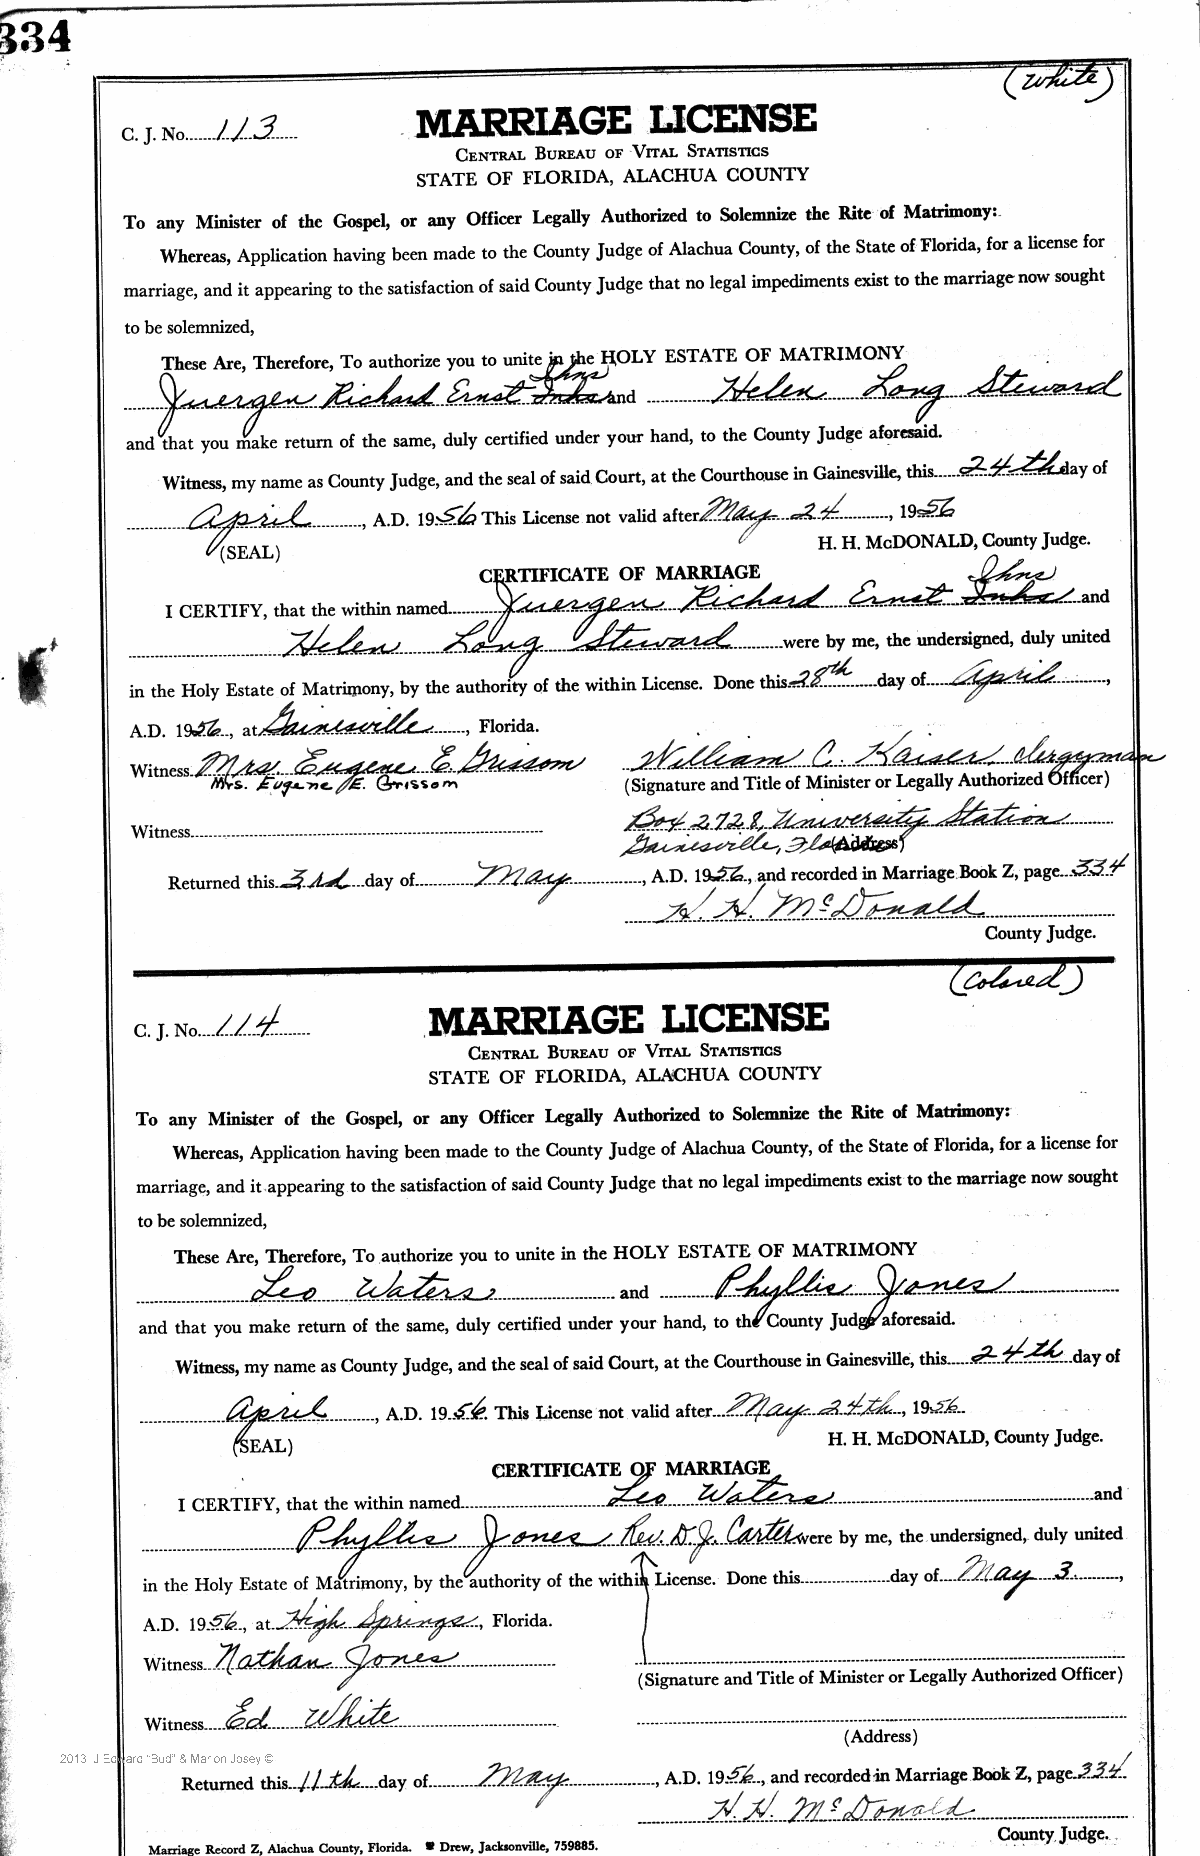 334
(White)
C. J. No. 113
MARRIAGE LICENSE
CENTRAL BUREAU OF VITAL STATISTICS
STATE OF FLORIDA, ALACHUA COUNTY
To any Minister of the Gospel, or any Officer Legally Authorized to Solemnize the Rite of Matrimony:
Whereas, Application having been made to the County Judge of Alachua County, of the State of Florida, for a license for
marriage, and it appearing to the satisfaction of said County Judge that no legal impediments exist to the marriage now sought
to be solemnized,
These Are, Therefore, To authorize you to unite in the HOLY ESTATE OF MATRIMONY
Ihns
Juergen Richard Ernst Inhs and Helen Long Steward
and that you make return of the same, duly certified under your hand, to the County Judge aforesaid.
Witness, my name as County Judge, and the seal of said Court, at the Courthouse in Gainesville, this 24th day of
April, A.D. 1956 This License not valid after May 24, 1956
(SEAL) H. H. McDONALD, County Judge.
CERTIFICATE OF MARRIAGE
Ihns
I CERTIFY, that the within named Juergen Richard Ernst Inhs and
Helen Long Steward were by me, the undersigned, duly united
in the Holy Estate of Matrimony, by the authority of the within License. Done this 28th day of April,
A.D. 1956, at Gainesville, Florida.
Witness Mrs Eugene E. Grissom William C. Kaiser, clergyman
Mrs. Eugene E. Grissom (Signature and Title of Minister or Legally Authorized Officer)
Box 2728, University Station
Witness
Gainesville, Florida (Address)
Returned this 3rd day of May, A.D. 1956, and recorded in Marriage Book Z, page 334
H. H. McDonald
County Judge.
(Colored)
C. J. No. 114
MARRIAGE LICENSE
CENTRAL BUREAU OF VITAL STATISTICS
STATE OF FLORIDA, ALACHUA COUNTY
To any Minister of the Gospel, or any Officer Legally Authorized to Solemnize the Rite of Matrimony:
Whereas, Application having been made to the County Judge of Alachua County, of the State of Florida, for a license for
marriage, and it appearing to the satisfaction of said County Judge that no legal impediments exist to the marriage now sought
to be solemnized,
These Are, Therefore, To authorize you to unite in the HOLY ESTATE OF MATRIMONY
Leo Waters and Phyllis Jones
and that you make return of the same, duly certified under your hand, to the County Judge aforesaid.
Witness, my name as County Judge, and the seal of said Court, at the Courthouse in Gainesville, this 24th day of
April, A.D. 1956. This License not valid after May 24th, 1956
(SEAL) H. H. McDONALD, County Judge.
CERTIFICATE OF MARRIAGE
I CERTIFY, that the within named Leo Waters and
Phyllis Jones Rev. D. J. Carter were by me, the undersigned, duly united
in the Holy Estate of Matrimony, by the authority of the within License. Done this day of May 3,
A.D. 1956, at High Springs, Florida.
Witness Nathan Jones
(Signature and Title of Minister or Legally Authorized Officer)
Witness Ed White
(Address)
2013 J Edward "Bud" & Marion Josey ©
Returned this 11th day of May, A.D. 1956, and recorded in Marriage Book Z, page 334
H. H. McDonald
County Judge.
Marriage Record Z, Alachua County, Florida. Drew, Jacksonville, 759885.